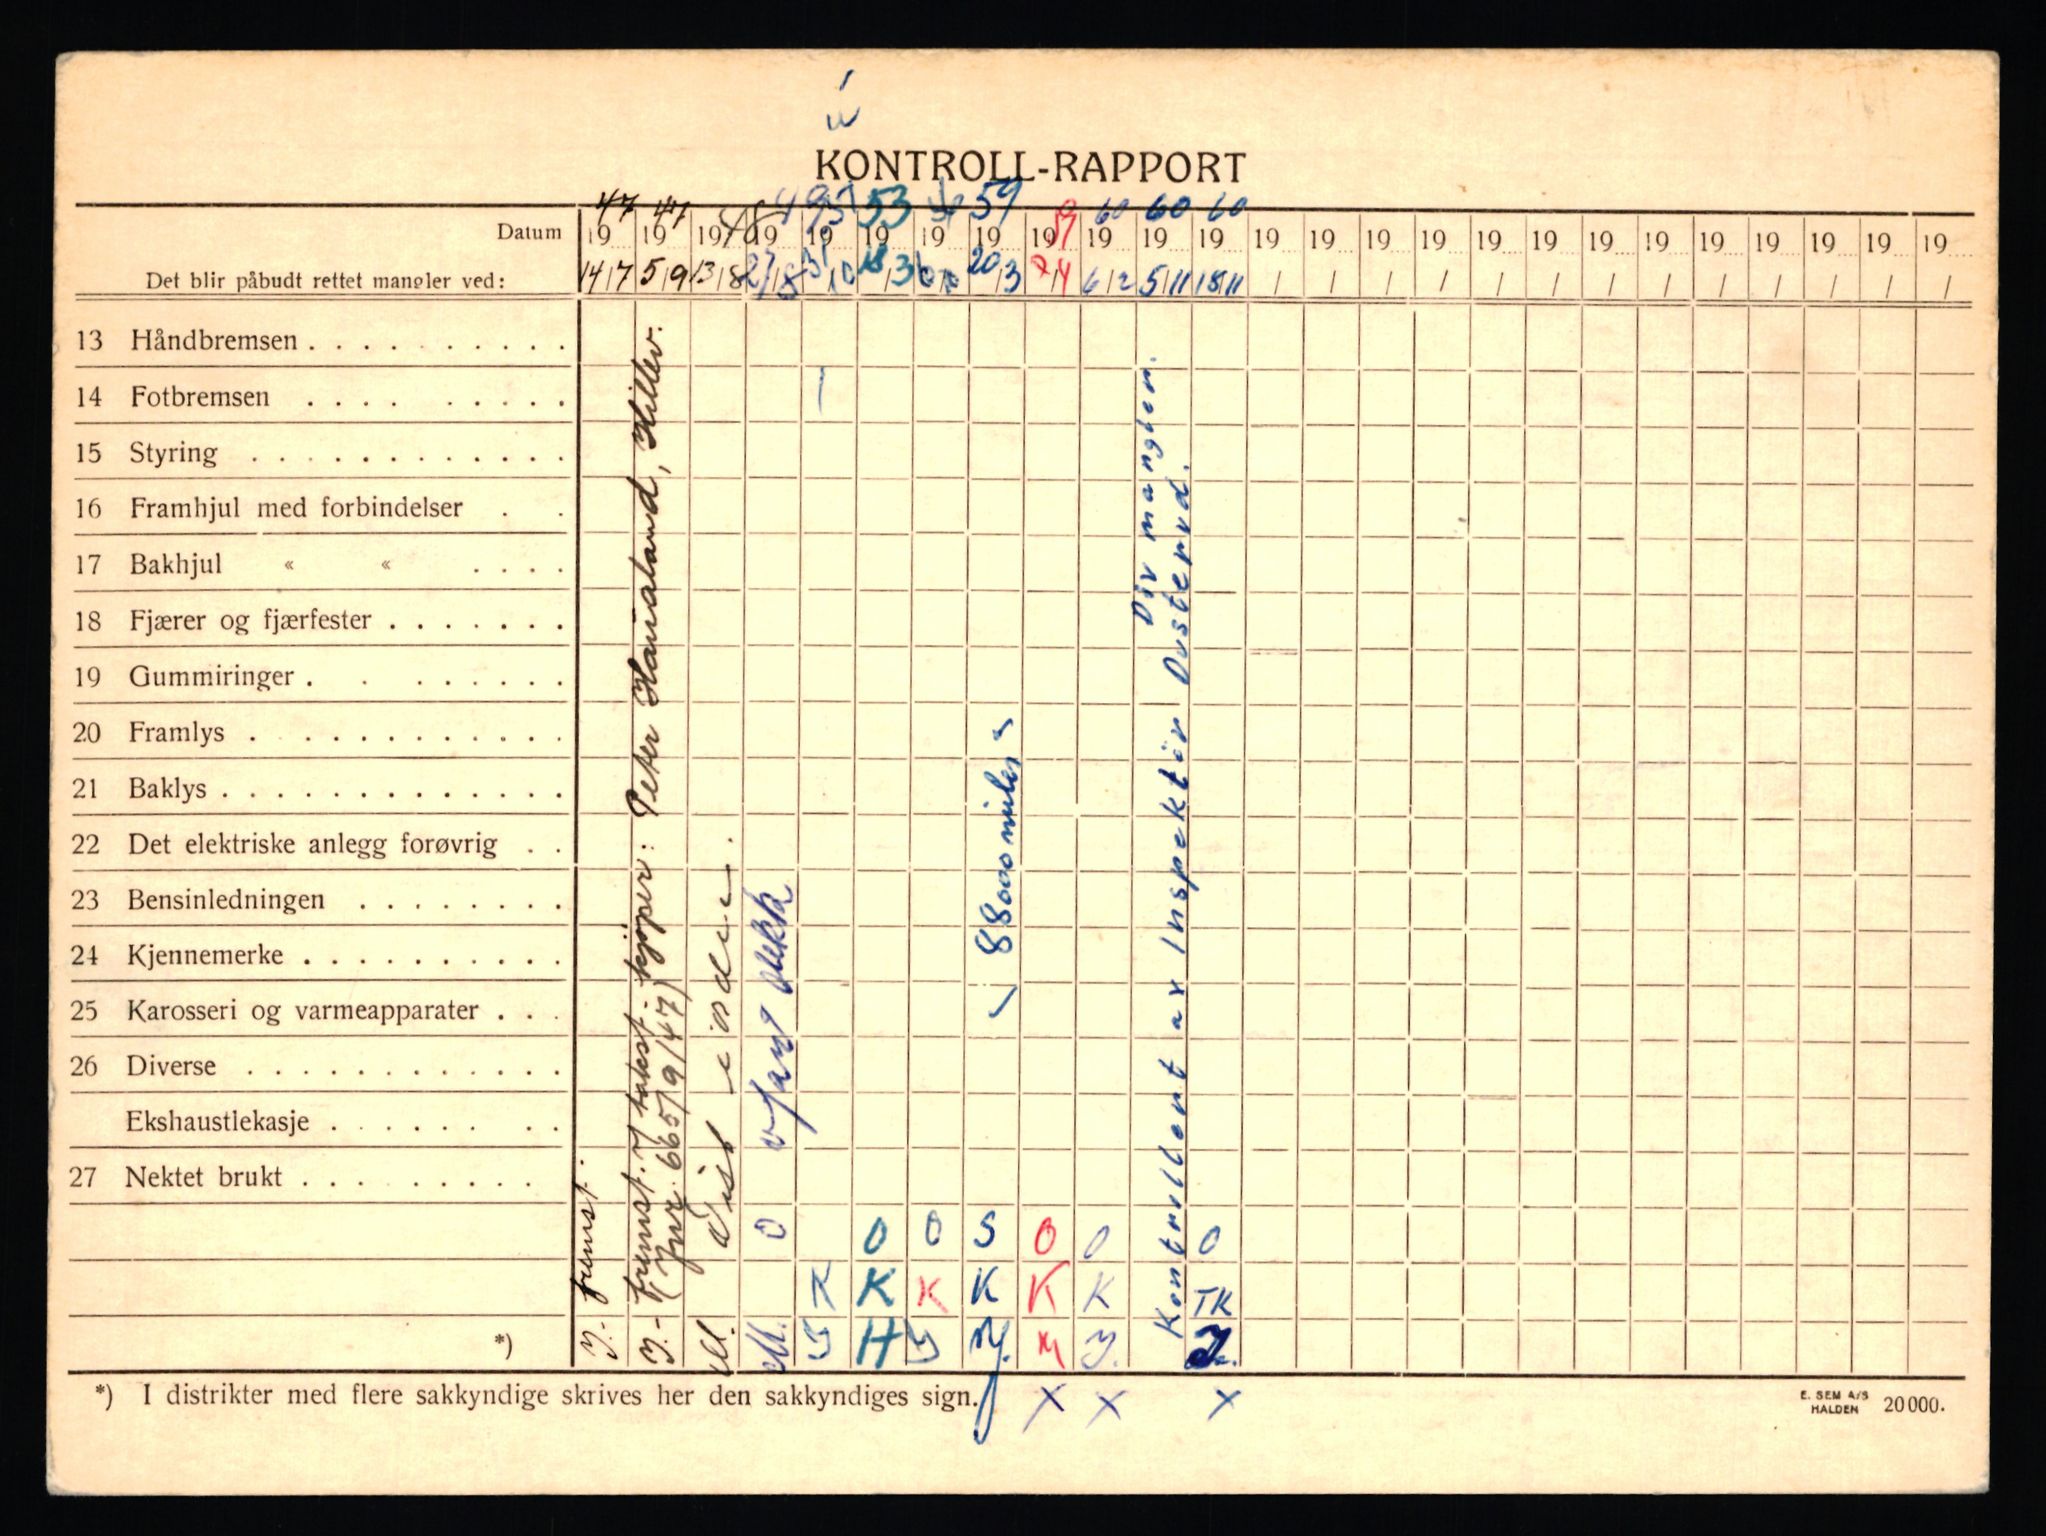 KONTROLL-RAPPORT
Datum
47 47 48 49 51 53 59 60 60 60
19 19 19 19 19 19 19 19 19 19 19 19 19 19 19 19 19 19 19 19 19 19 19 19 19
Det blir påbudt rettet mangler ved:
14/7 5/9 13/8 27/8 18/3 20/3 6/2 5/11 18/11
13 Håndbremsen
14 Fotbremsen
15 Styring
16 Framhjul med forbindelser
17 Bakhjul « «
18 Fjærer og fjærfester
19 Gummiringer
20 Framlys
21 Baklys
22 Det elektriske anlegg forøvrig
23 Bensinledningen
24 Kjennemerke
25 Karosseri og varmeapparater
26 Diverse
Ekshaustlekasje
27 Nektet brukt
Y.- fremst.
Y.- fremst. kjøper: Peter
665/9/47)
M. iorden.
88000 miles
Div manglem.
Kontrollert av Inspektør
O O O S O O O
K K K K K K TK
M. H Y.
X X X
*)
*) I distrikter med flere sakkyndige skrives her den sakkyndiges sign.
E. SEM A/S
HALDEN 20000.